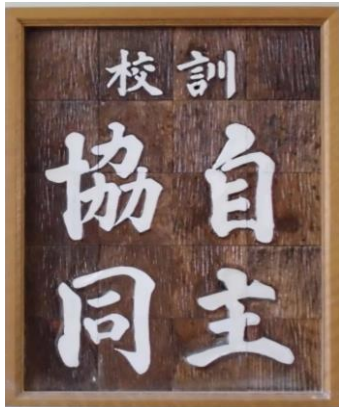 校訓
自主
協同